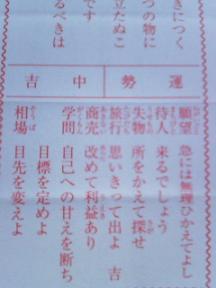 きにつく
つの物に
立たぬこ
です
るべきは
運勢 中吉
願望 急には無理ひかえてよし
待人 来るでしょう
失物 所をかえて探せ
旅行 思いきって出よ 吉
商売 改めて利益あり
学問 自己への甘えを断ち
目標を定めよ
相場 目先を変えよ